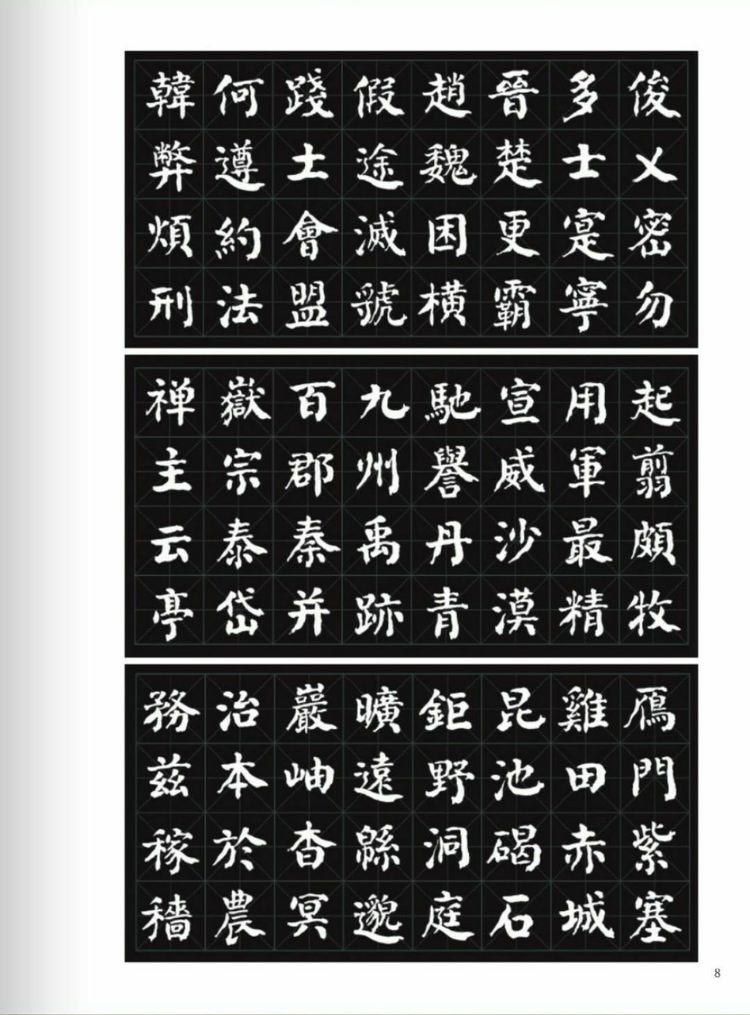 俊乂密勿
多士寔寧
晉楚更霸
趙魏困横
假途滅虢
踐土會盟
何遵約法
韓弊煩刑
起翦頗牧
用軍最精
宣威沙漠
馳譽丹青
九州禹跡
百郡秦并
嶽宗泰岱
禅主云亭
鴈門紫塞
雞田赤城
昆池碣石
鉅野洞庭
曠遠緜邈
巖岫杳冥
治本於農
務茲稼穡
8